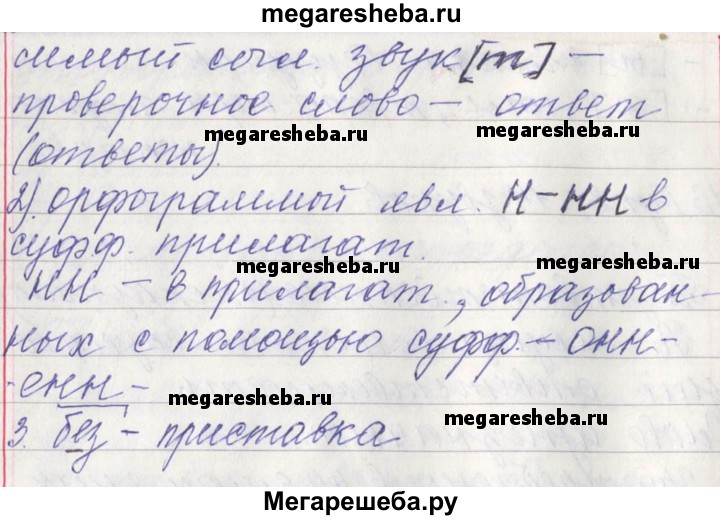 megaresheba.ru
симый согл. звук [т] –
проверочное слово – ответ
megaresheba.ru megaresheba.ru
(ответы).
2). орфограммой явл. Н – НН в
суфф. прилагат.
megaresheba.ru megaresheba.ru
НН – в прилагат., образован-
ных с помощью суфф. – онн-
-енн-
megaresheba.ru megaresheba.ru
3. без – приставка
megaresheba.ru
Мегарешеба.ру